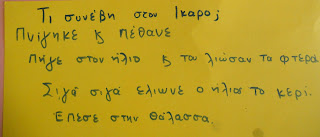 Τι συνέβη στον Ικαρο;
Πνίγηκε ϗ πέθανε
Πήγε στον ήλιο ϗ του λιώσαν τα φτερά
Σιγά σιγά έλιωνε ο ήλιο το κερί.
Έπεσε στην θάλασσα.